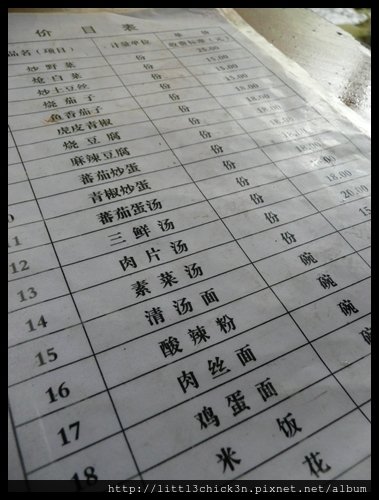 价目表
品名(项目) 计量单位 单价
收费标准(元)
炒野菜 份
炝白菜 份 15.00
炒土豆丝 份 15.00
烧茄子 份 15.00
鱼香茄子 份 18.00
虎皮青椒 份
烧豆腐 份
麻辣豆腐 份
蕃茄炒蛋 份
青椒炒蛋 份
11 蕃茄蛋汤 份
12 三鲜汤 份
13 肉片汤 份
14 素菜汤 份
15 清汤面 碗
16 酸辣粉 碗
17 肉丝面 碗
18 鸡蛋面 碗
米饭
花
http://litt13chick3n.pixnet.net/album